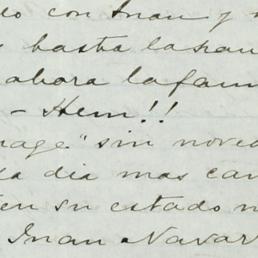 do con Juan y
hasta la
ahora la fam
- Hem!!
nage" sin noved
dia mas can
en su estado n
Juan Navar